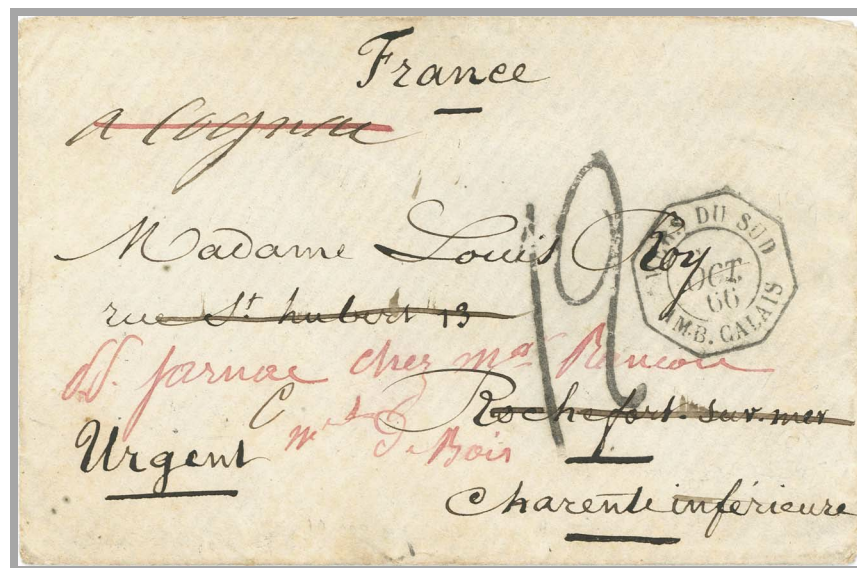 France
a Cognac
Madame Louis Roy
rue St hubert 13
jarnac chez
Rochefort. sur. mer
Urgent
Charente inférieure
12
DU SUD
OCT.
66
AMB. CALAIS